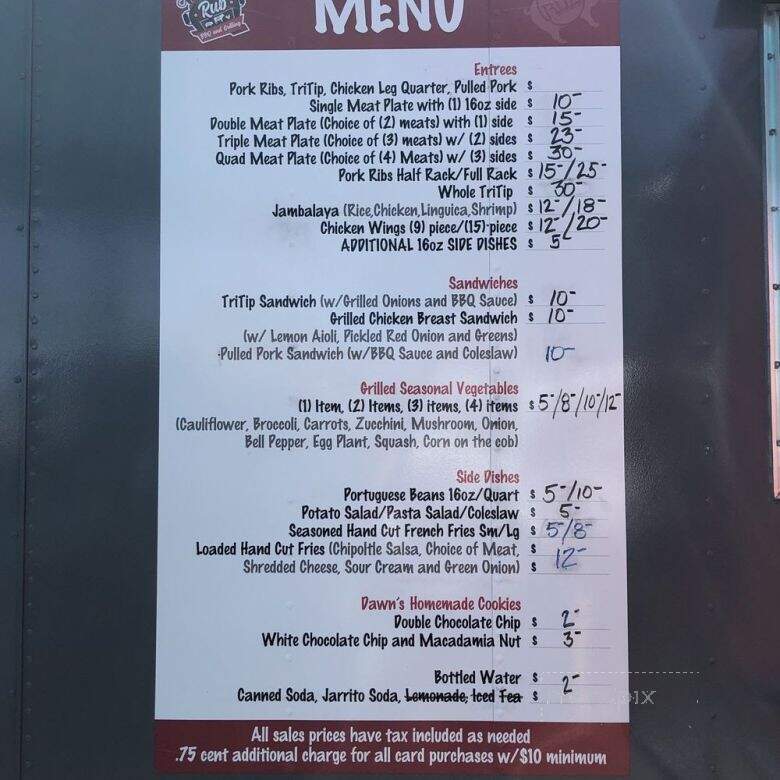 Rub
BBQ and Grilling
MENU
Entrees
Pork Ribs, TriTip, Chicken Leg Quarter, Pulled Pork $
Single Meat Plate with (1) 16oz side $ 10-
Double Meat Plate (Choice of (2) meats) with (1) side $ 15-
Triple Meat Plate (Choice of (3) meats) w/ (2) sides $ 23-
Quad Meat Plate (Choice of (4) Meats) w/ (3) sides $ 30-
Pork Ribs Half Rack/Full Rack $ 15-/25-
Whole TriTip $ 30-
Jambalaya (Rice,Chicken,Linguica,Shrimp) $ 12-/18-
Chicken Wings (9) piece/(15)-piece $ 12-/20-
ADDITIONAL 16oz SIDE DISHES $ 5-
Sandwiches
TriTip Sandwich (w/Grilled Onions and BBQ Sauce) $ 10-
Grilled Chicken Breast Sandwich $ 10-
(w/ Lemon Aioli, Pickled Red Onion and Greens)
Pulled Pork Sandwich (w/BBQ Sauce and Coleslaw) 10-
Grilled Seasonal Vegetables
(1) Item, (2) Items, (3) items, (4) items $ 5-/8-/10-/12-
(Cauliflower, Broccoli, Carrots, Zucchini, Mushroom, Onion,
Bell Pepper, Egg Plant, Squash, Corn on the cob)
Side Dishes
Portuguese Beans 16oz/Quart $ 5-/10-
Potato Salad/Pasta Salad/Coleslaw $ 5-
Seasoned Hand Cut French Fries Sm/Lg $ 5-/8-
Loaded Hand Cut Fries (Chipoltle Salsa, Choice of Meat, $ 12-
Shredded Cheese, Sour Cream and Green Onion) $
Dawn's Homemade Cookies
Double Chocolate Chip $ 2-
White Chocolate Chip and Macadamia Nut $ 3-
Bottled Water $
Canned Soda, Jarrito Soda, Lemonade, Iced Tea $ 2-
All sales prices have tax included as needed
.75 cent additional charge for all card purchases w/$10 minimum